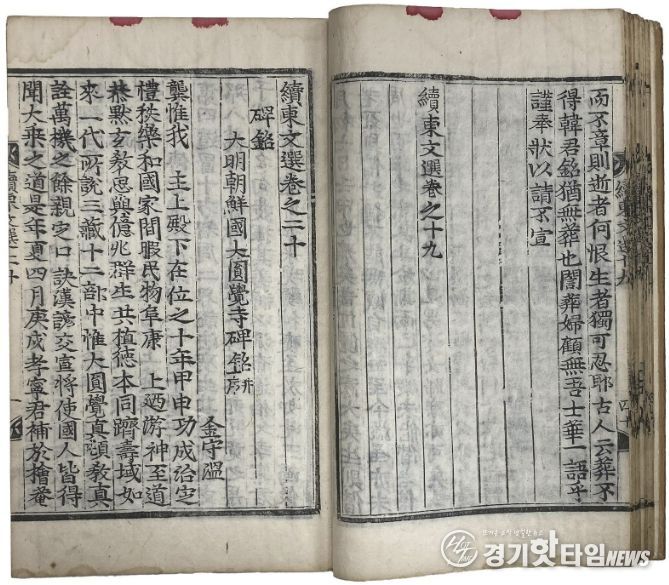 而不章則逝者何恨生者獨可忍耶古人云葬不
得韓君銘猶無葬也闇葬婦顧無吾士華一語乎
謹奉狀以請不宣
續東文選卷之十九
續東文選卷之二十
碑銘
大明朝鮮國大圓覺寺碑銘 幷序
金守溫
龔惟我 主上殿下在位之十年甲申功成治定
禮秩樂和國家閒暇民物阜康 上迺游神至道
恭默玄教思與億兆群生共植德本同躋壽域如
來一代所說三藏十二部中惟大圓覺眞頓敎眞
詮萬機之餘親定口訣漢諺交宣將使國人皆得
聞大乘之道是年夏四月庚戌孝寧君補於檜菴
續東文選二十
경기핫타임NEWS